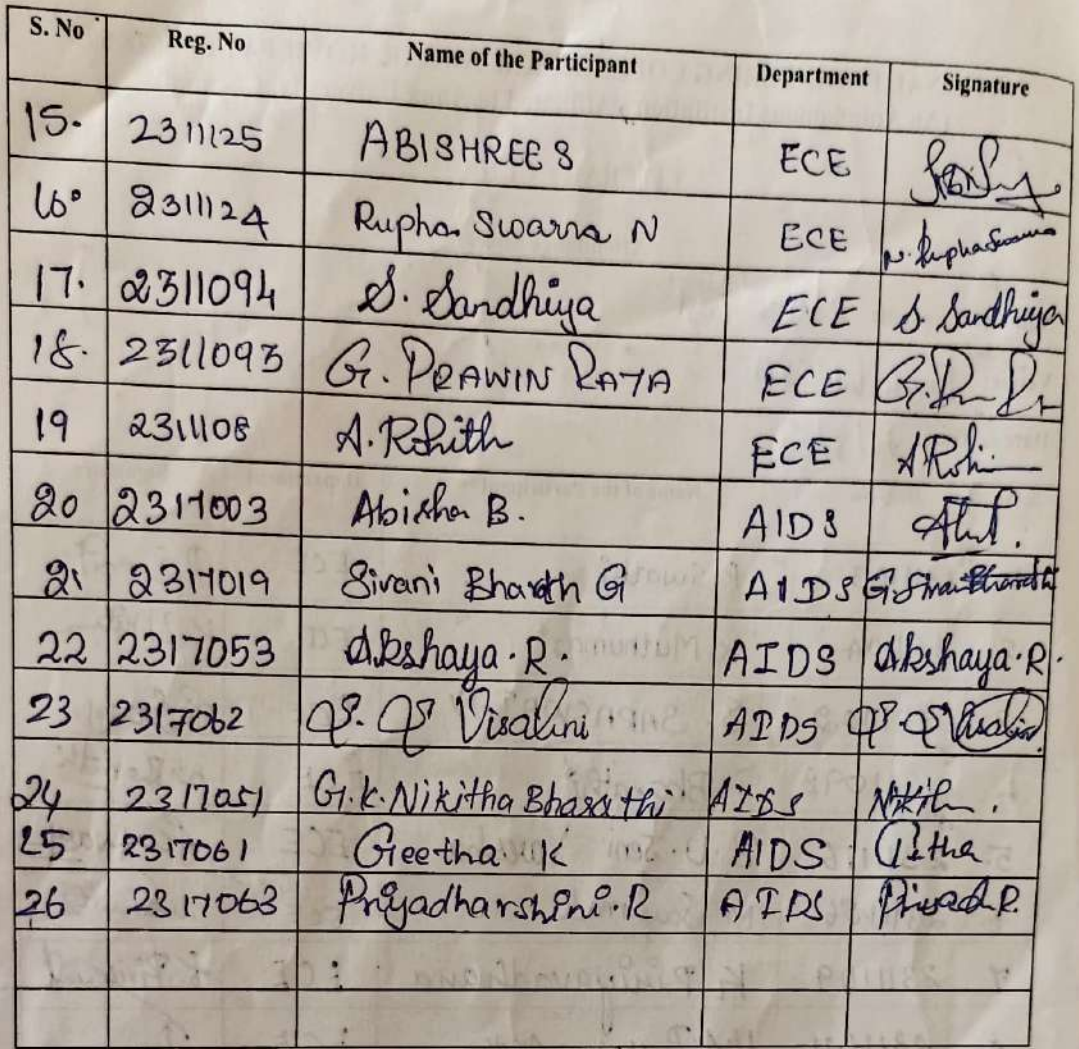 S. No Reg. No Name of the Participant Department Signature
15. 2311125 ABISHREE S ECE
16. 2311124 Rupha Swarna N ECE N. Rupha Swarna
17. 2311094 S. Sandhiya ECE S. Sandhiya
18. 2311093 G. PRAWIN RAJA ECE
19 2311108 A. Rohith ECE A Rohi
20 2317003 Abisha B. AIDS
21 2317019 Sivani Bharathi G AIDS G. Sivani Bharathi
22 2317053 Akshaya. R. AIDS Akshaya. R.
23 2317062 Visalini AIDS Visalini
24 2317051 G.K. Nikitha Bharathi AIDS
25 2317061 Geetha K AIDS Githa
26 2317063 Priyadharshini. R AIDS